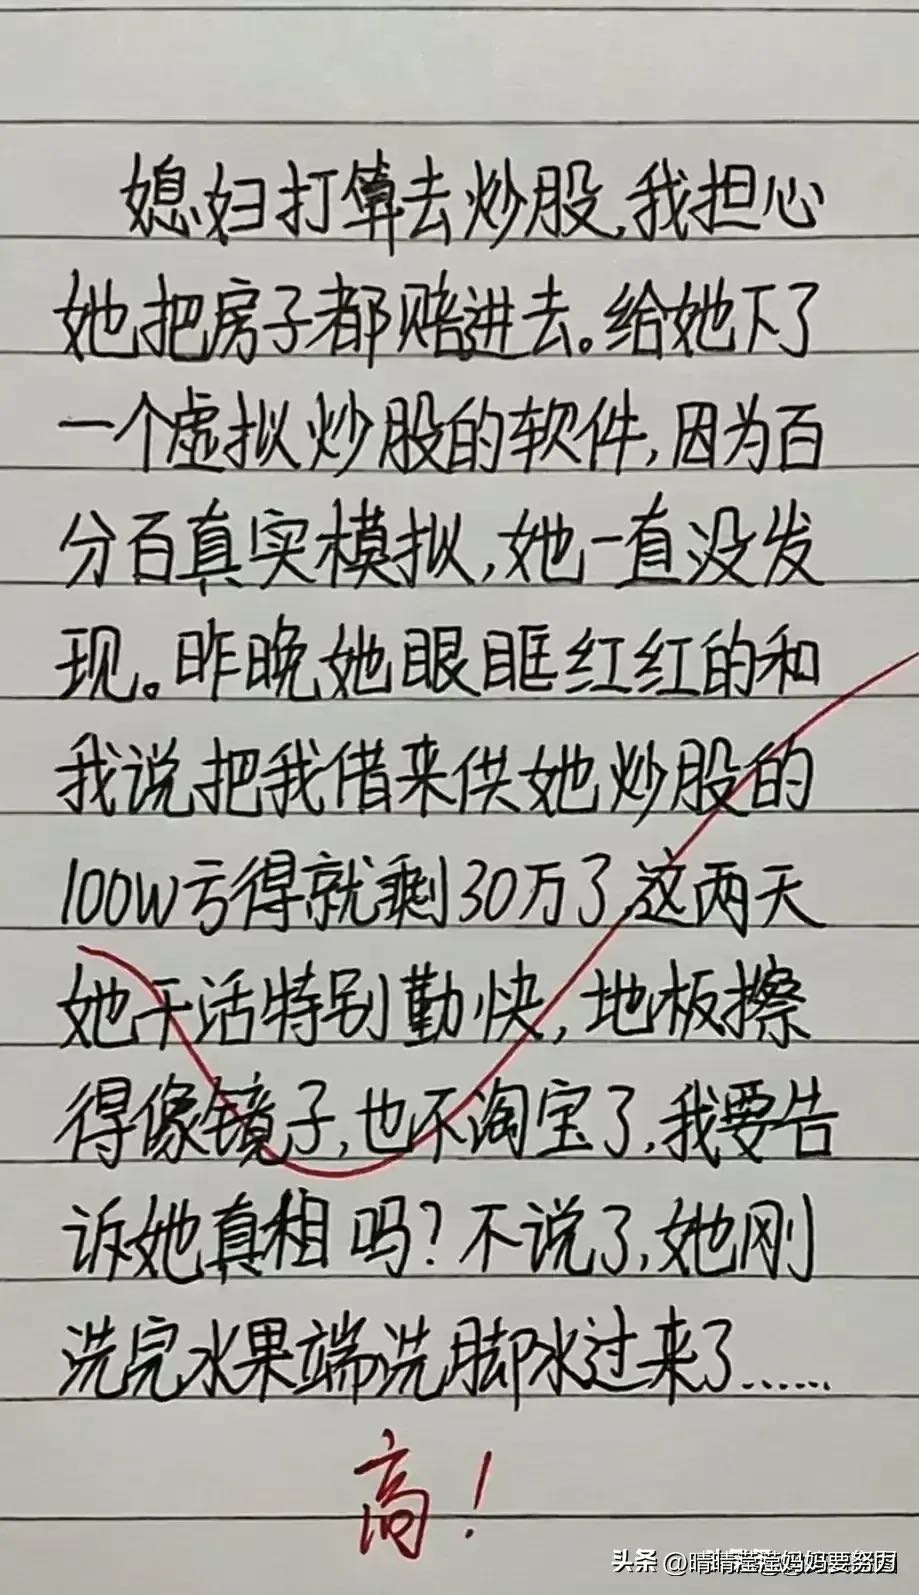 媳妇打算去炒股,我担心
她把房子都赔进去。给她下了
一个虚拟炒股的软件,因为百
分百真实模拟,她一直没发
现。昨晚她眼眶红红的和
我说把我借来供她炒股的
100W亏得就剩30万了,这两天
她干活特别勤快,地板擦
得像镜子,也不淘宝了,我要告
诉她真相吗?不说了,她刚
洗完水果端洗脚水过来了……
高!
头条 @晴晴滢滢妈妈要努力